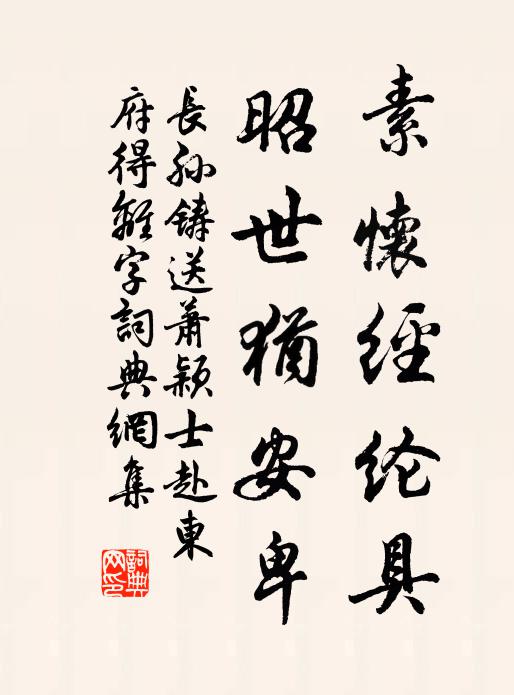 素懷經纶具
昭世猶安卑
長孫鑄送蕭穎士赴東
府得離字詞典網集
詞典网印